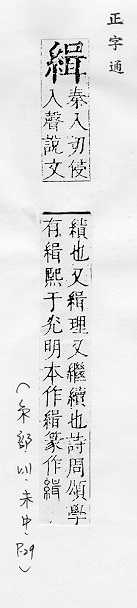 正字通
緝
秦入切侵
入聲說文
績也又緝理又繼續也詩周頌學
有緝熙于灮明本作緝篆作緝
(糸部 未中·P.29)